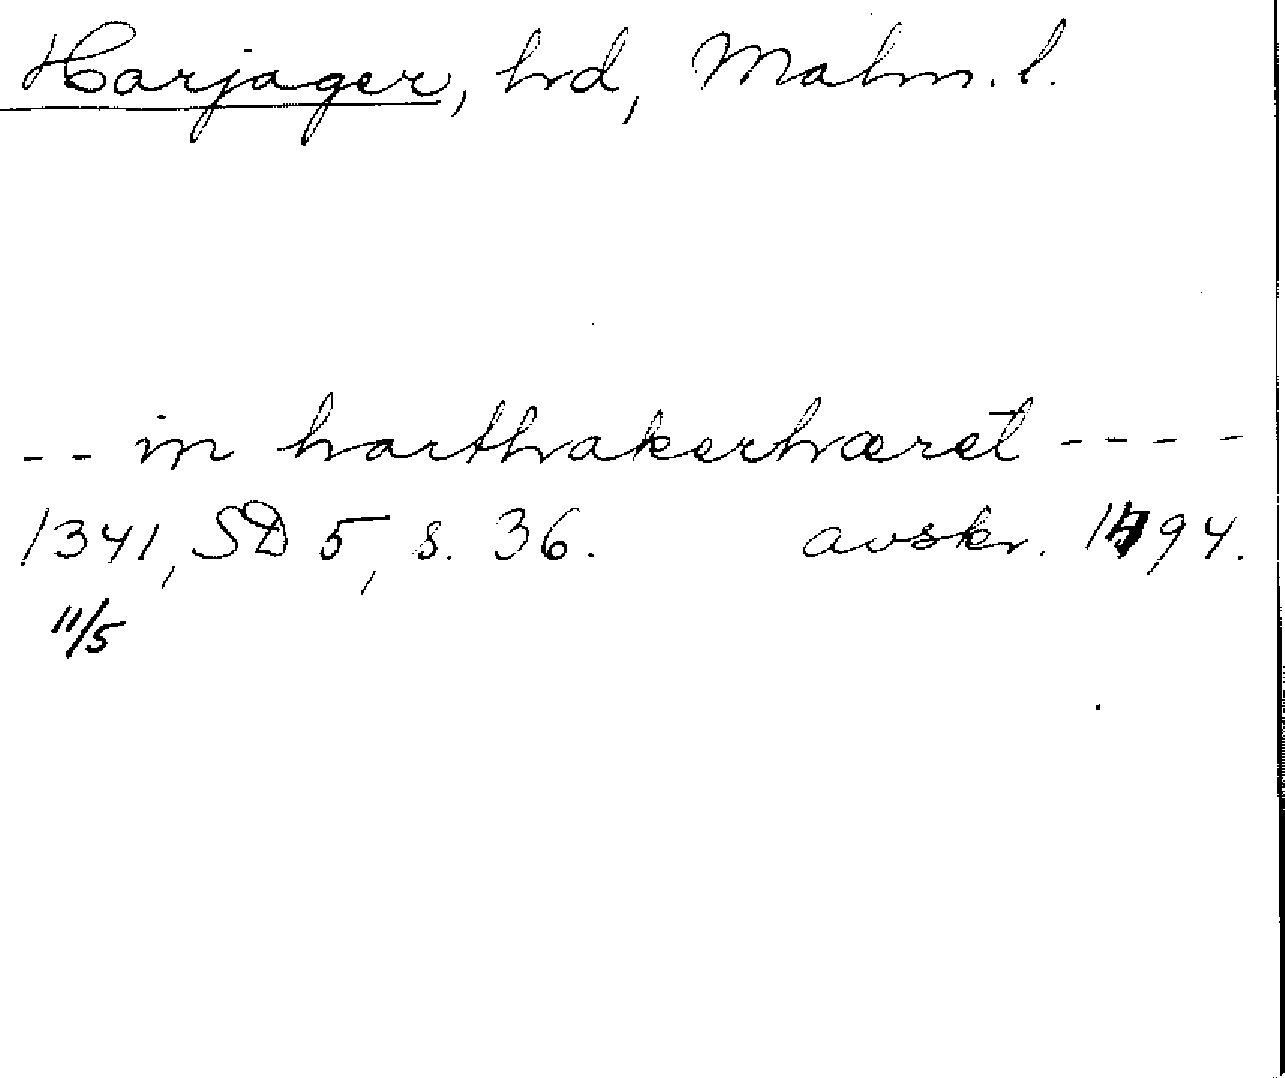 Harjager, hd, Malm. l.
-- in harthakerhæret ----
1341, SD 5, s. 36. avskr. 1494.
11/5